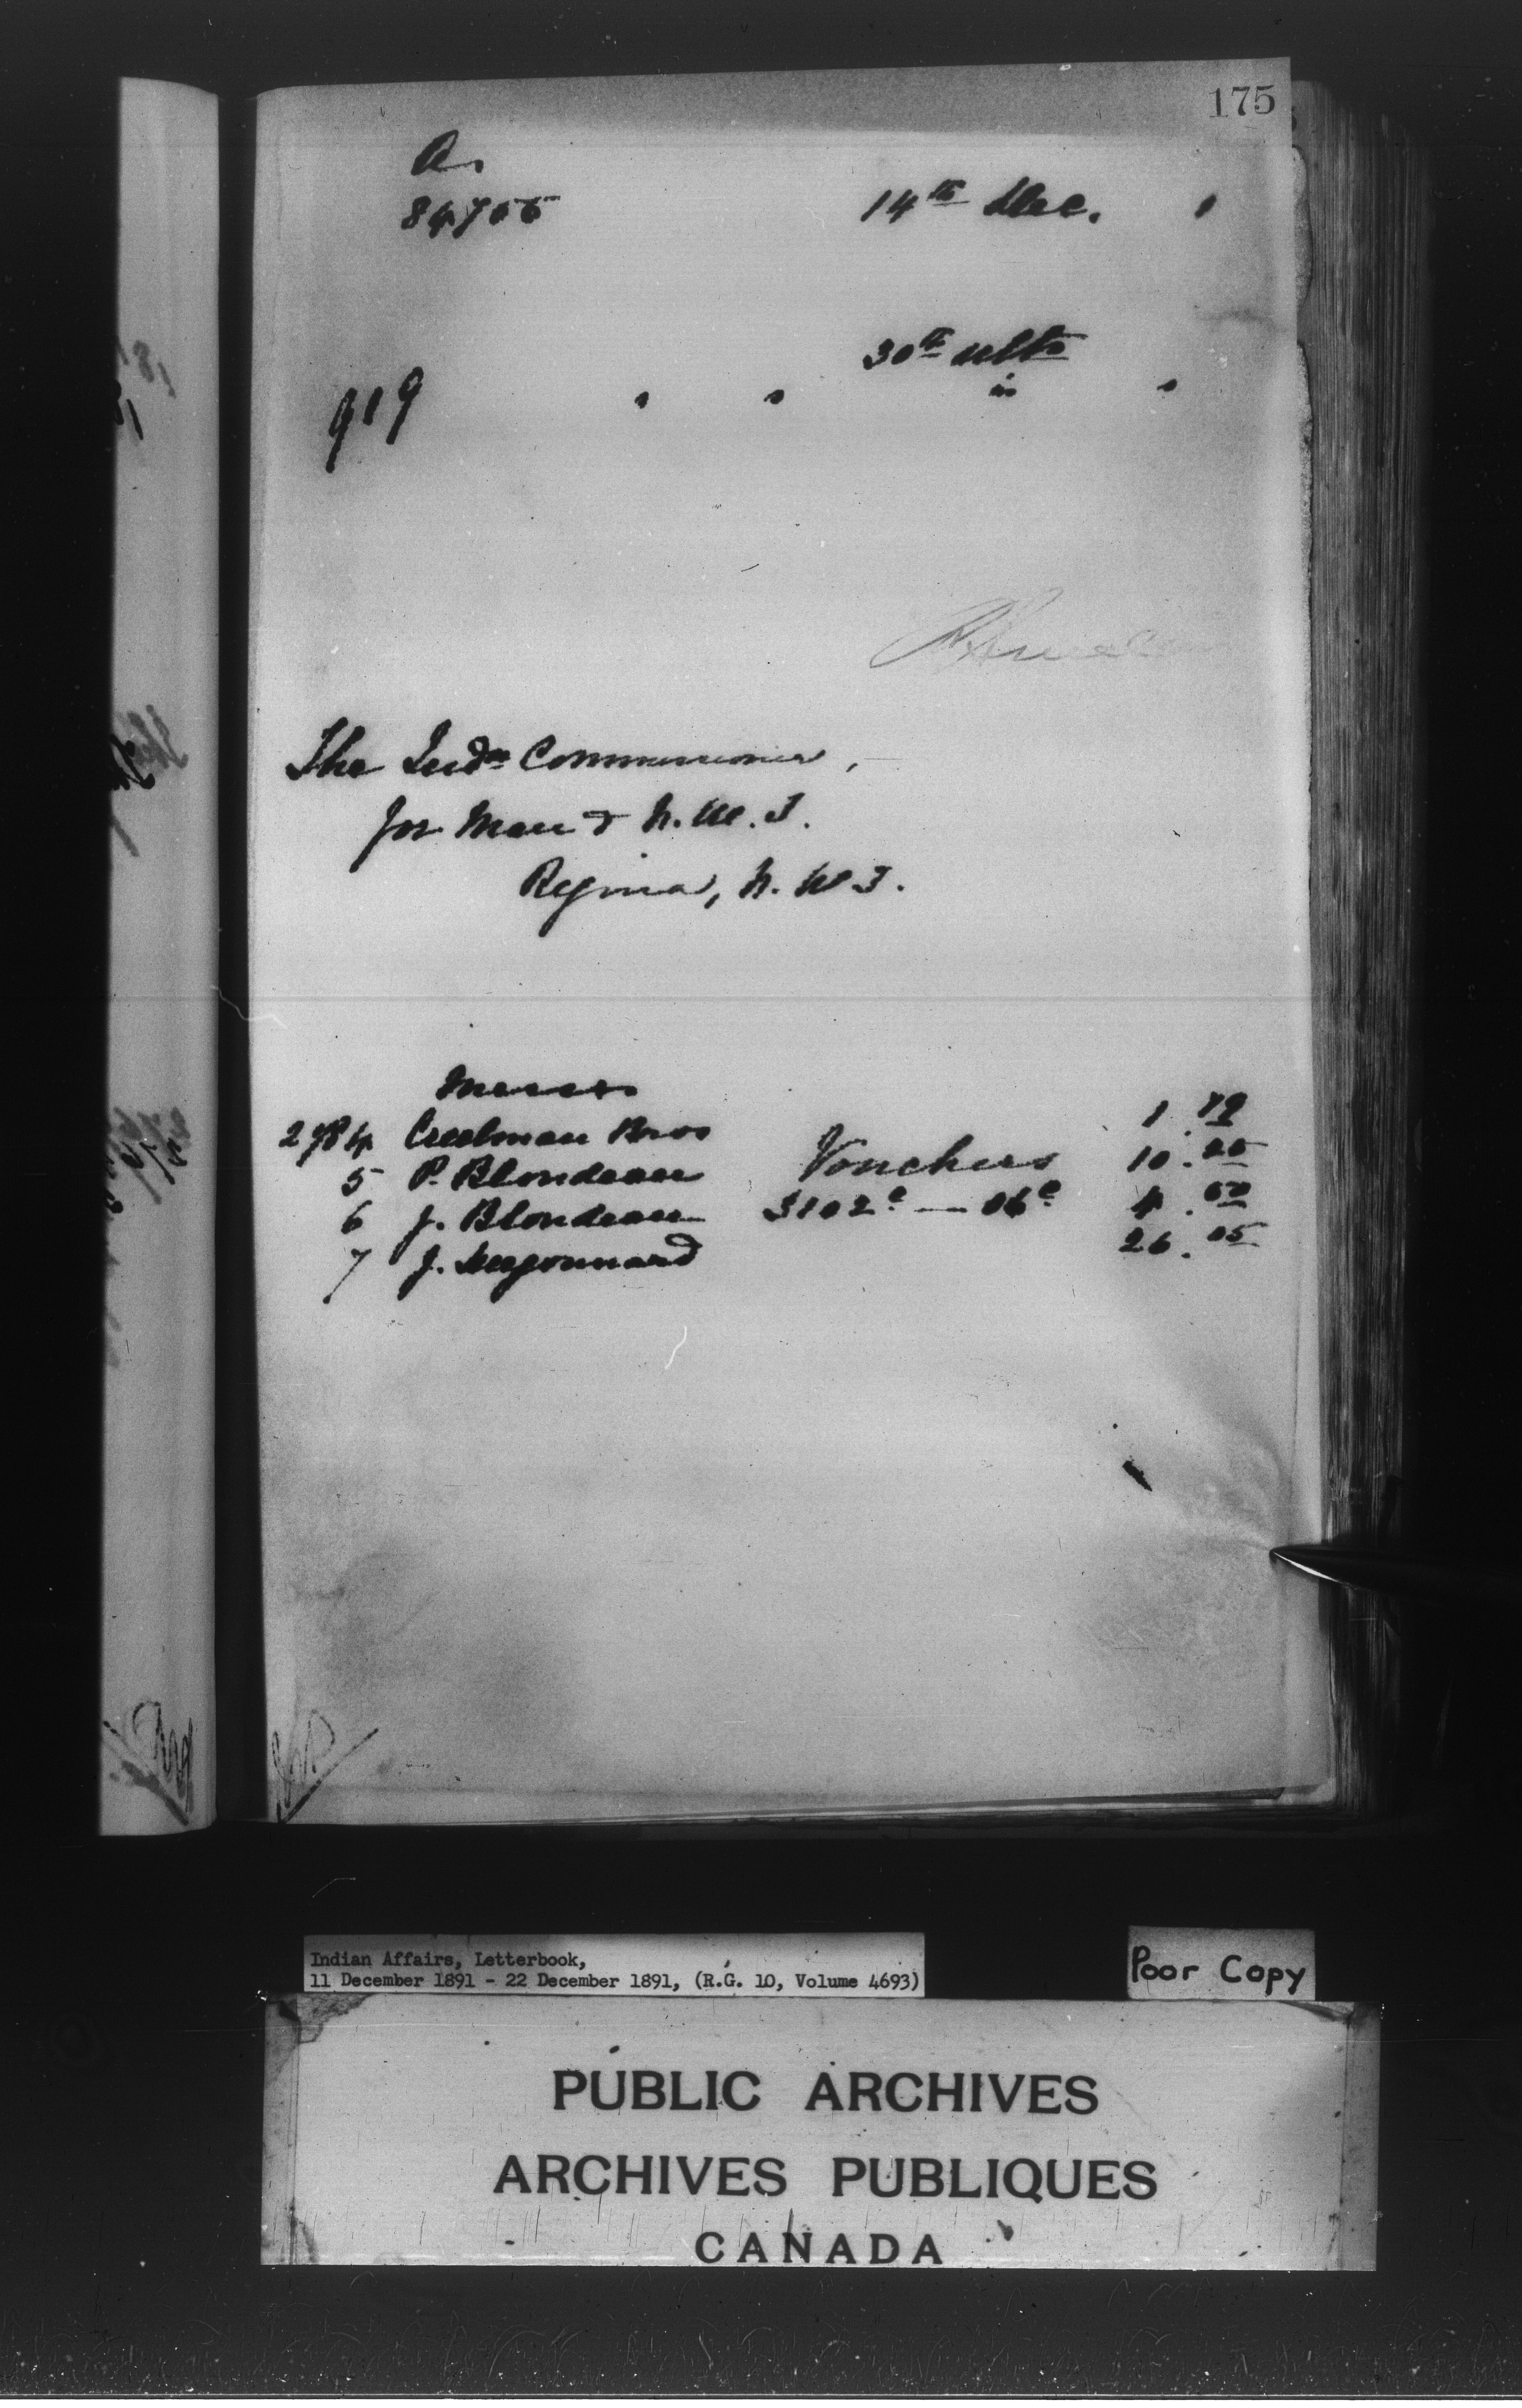 175
A.
84755
14th Dec. 1
30th ulto
919 " " in "
The Indn Commissioner,
for Man & N.W.T.
Regina, N.W.T.
Messrs
2784 Creelman Bros 1.79
5 P. Blondeau Vouchers 10.25
6 J. Blondeau 3102c — 06c 4.50
7 J. Hugonnard 26.05
Indian Affairs, Letterbook,
11 December 1891 - 22 December 1891, (R.G. 10, Volume 4693)
Poor Copy
PUBLIC ARCHIVES
ARCHIVES PUBLIQUES
CANADA